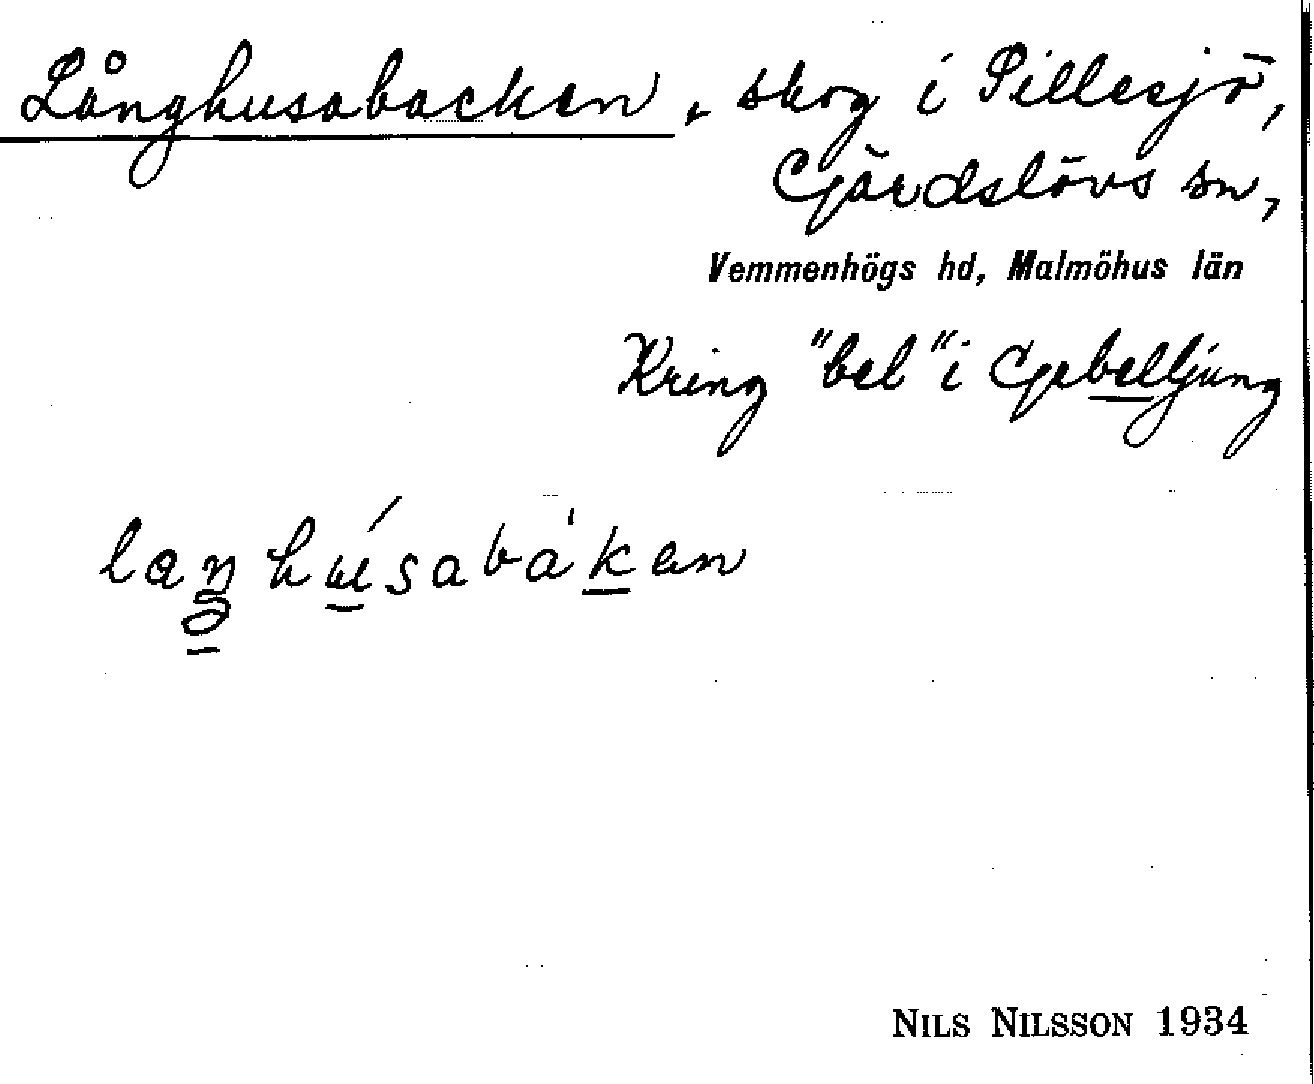 Långhusabacken, skog i Pillesjö,
Gärdslövs sn,
Vemmenhögs hd, Malmöhus län
Kring "bel" i Gebelljung
NILS NILSSON 1934